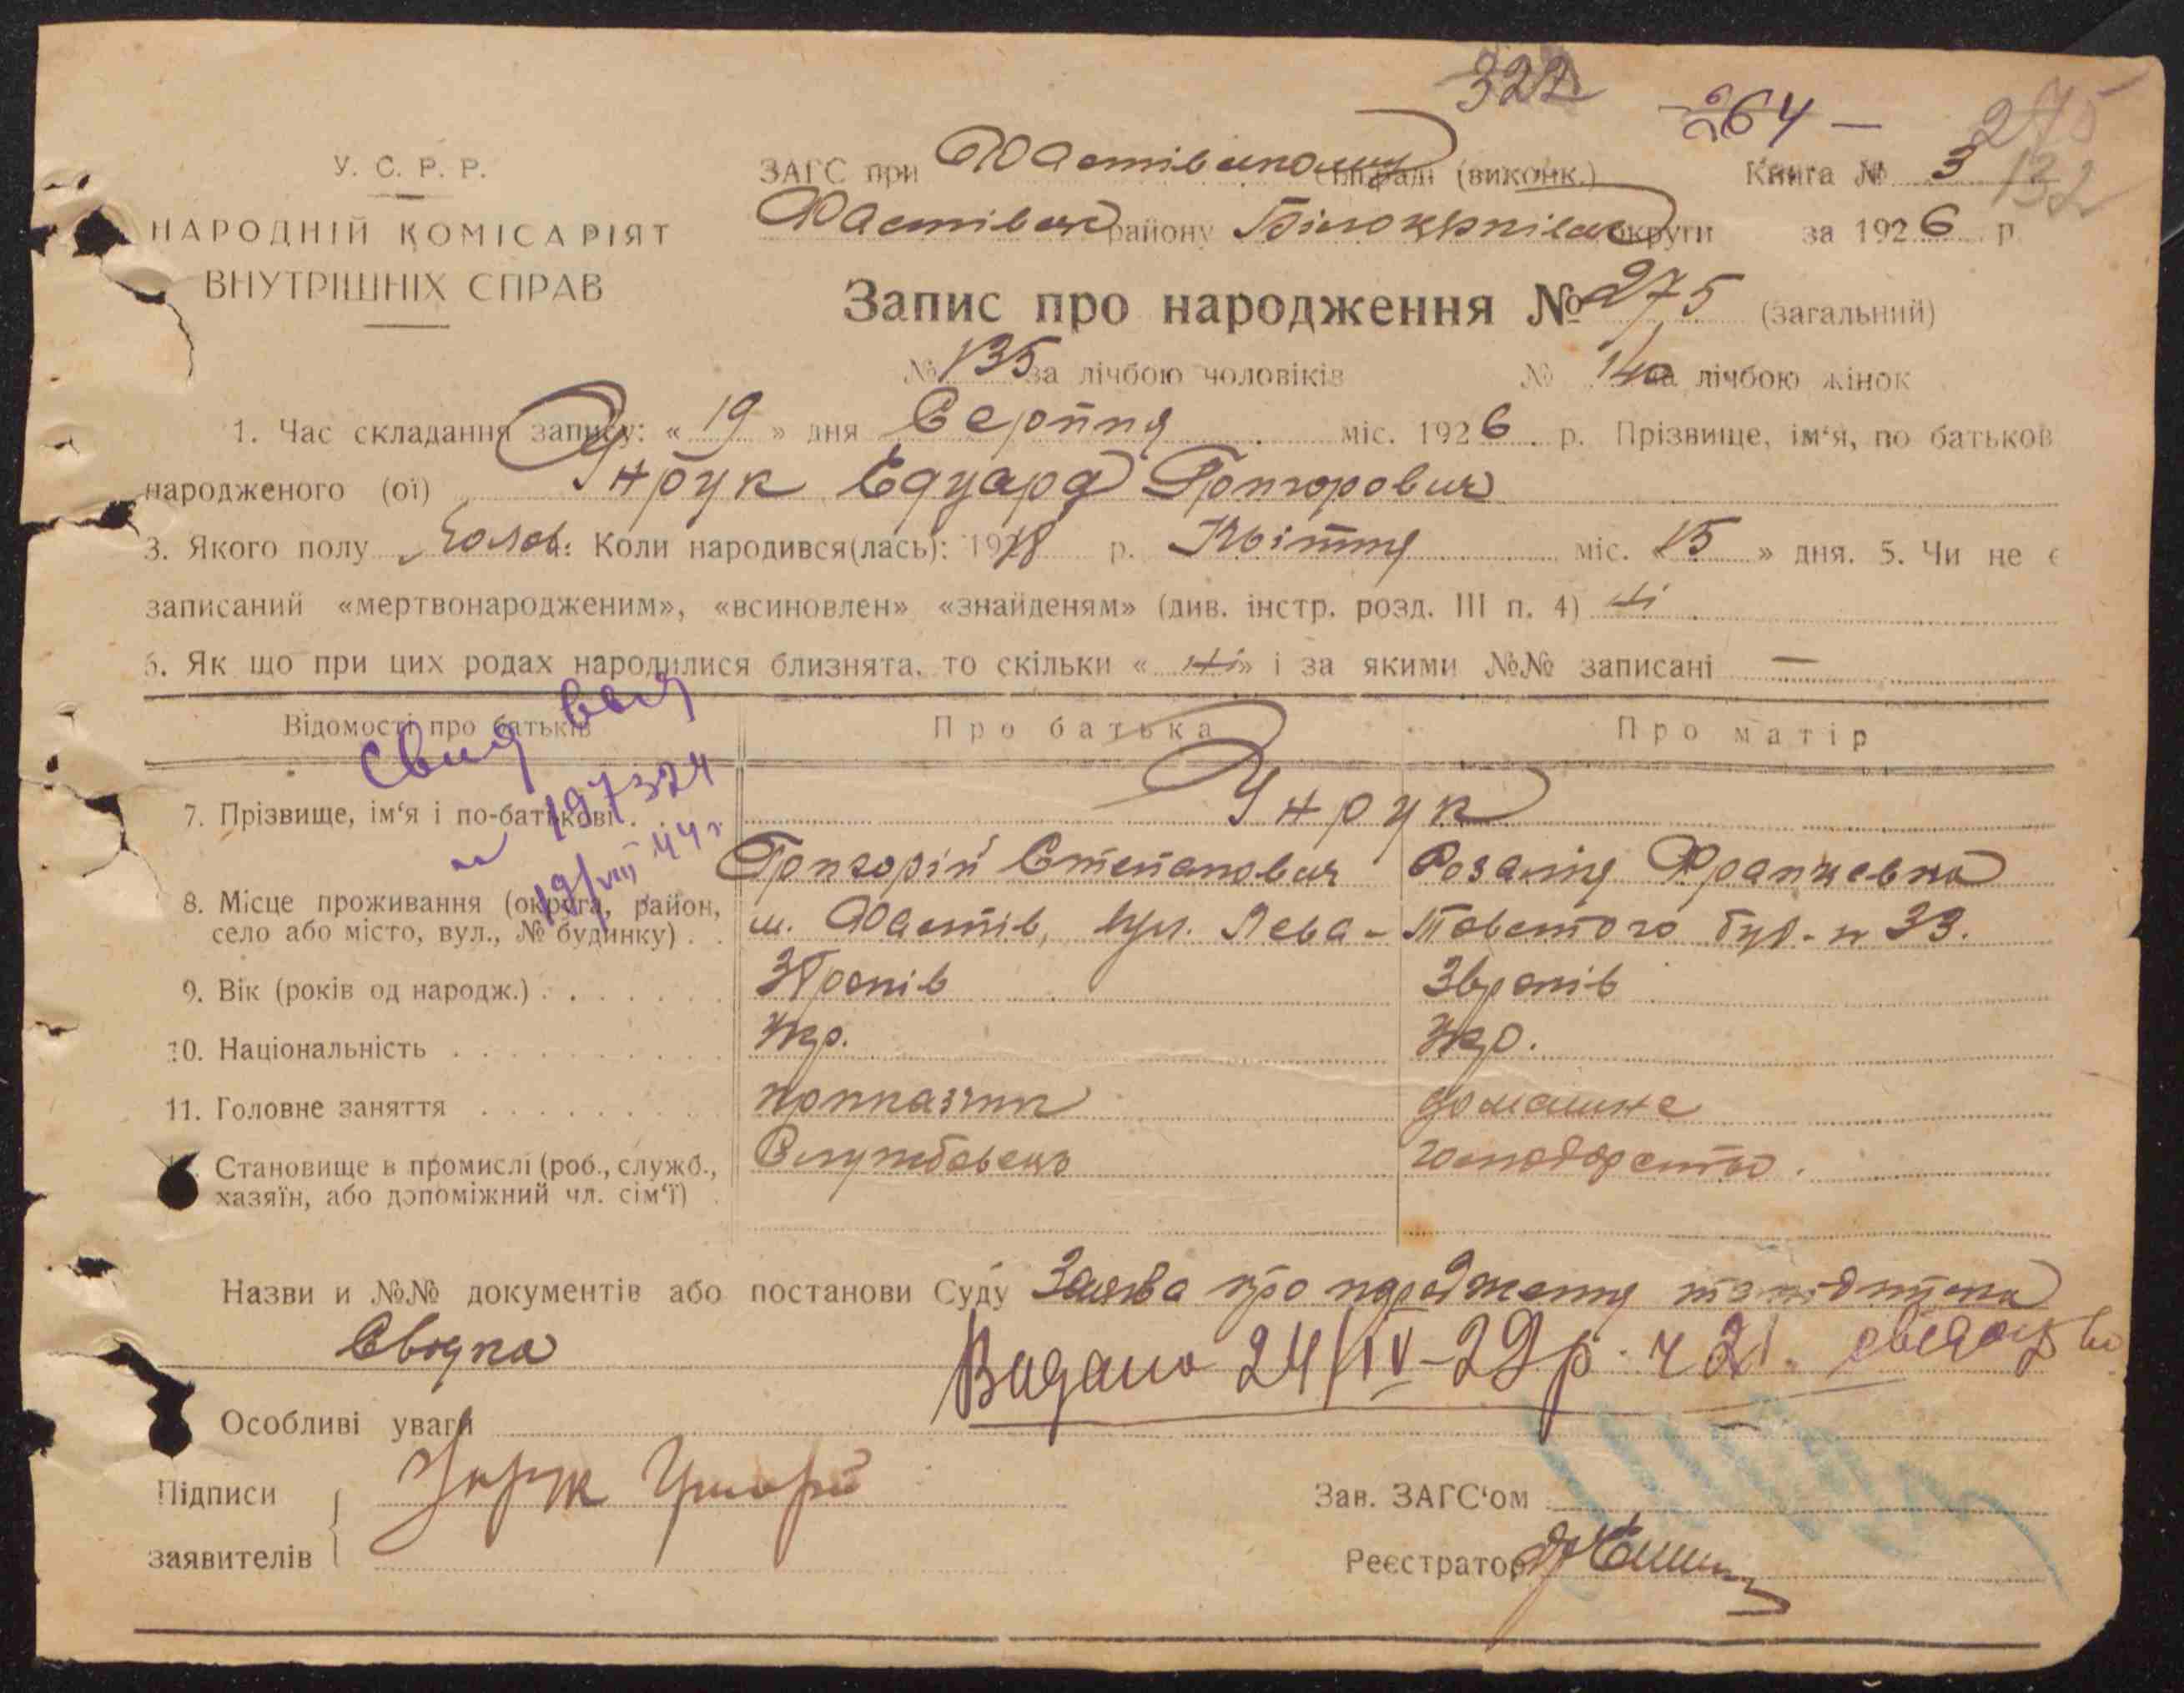 322
264 —
275
132
У. С. Р. Р.
НАРОДНІЙ КОМІСАРІЯТ
ВНУТРІШНІХ СПРАВ
ЗАГС при Фастівському сільраді (виконк.) Книга № 3
Фастівськ району Білоцерківськ округи за 1926 р.
Запис про народження № 275 (загальний)
№ 135 за лічбою чоловіків № 140 за лічбою жінок
1. Час складання запису: « 19 » дня Серпня міс. 1926 р. Прізвище, ім'я, по батьков
народженого (ої) Унрук Едуард Григорович
3. Якого полу Чолов. Коли народився(лась): 1918 р. Квітня міс. « 15 » дня. 5. Чи не є
записаний «мертвонародженим», «всиновлен» «знайденям» (див. інстр. розд. III п. 4) ні
6. Як що при цих родах народилися близнята, то скільки « ні » і за якими №№ записані —
Відомості про батьків Про батька Про матір
Свид
№ 197324
19/VIII 44 г
7. Прізвище, ім'я і по-батькові . . Унрук
Григорій Степанович Розалія Францевна
8. Місце проживання (округа, район,
село або місто, вул., № будинку) . . м. Фастів, вул. Лева- Товстого буд. № 33.
9. Вік (років од народж.) . . . . . . . років років
10. Національність . . . . . . . . . . Укр. Укр.
11. Головне заняття . . . . . . . . . приказчик домашнє
Становище в промислі (роб., служб.,
хазяїн, або допоміжний чл. сім'ї) . Службовець господарство.
Назви и №№ документів або постанови Суду Заява про народження та
Видано 24/IV-29 р. ч 21.
Особливі уваги
Підписи
заявителів
Унрук Григорій
Зав. ЗАГС'ом
Реєстратор